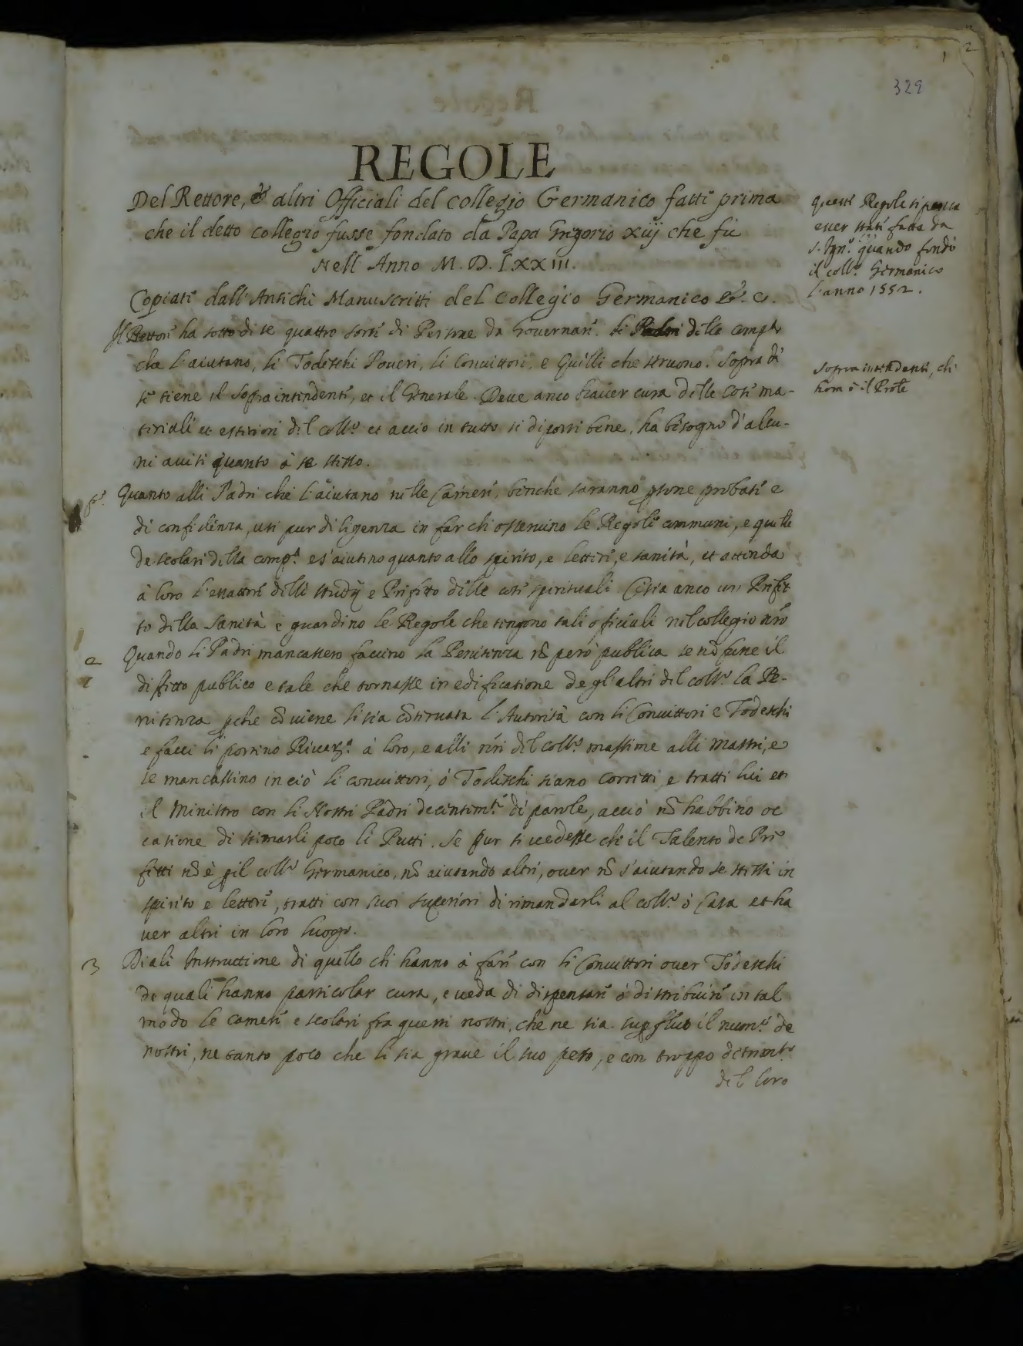 2
329
REGOLE
Del Rettore, & altri Officiali del collegio Germanico fatti prima
che il detto collegio fusse fondato da Papa Grigorio xiij che fù
Nell Anno M. D. LXXIII.
Copiati dall'Antichi Manuscritti del Collegio Germanico &. c.
questi Regole si pensa
esser stati fatte da
S. Ign.º quando fondò
il coll.º Germanico
l'anno 1552.
Il Rettorẽ ha sotto di se quattro sorti di Persone da Governarẽ. li Padri della comp.ª
che l'aiutano, li Todeschi Poveri, li Convittori, e Quelli che servono. Sopra di
se tiene il Sopraintendentẽ, et il Generale. Deve anco haver cura delle cose ma-
teriali et esteriori del coll.º et acciò in tutto si di porti bene, ha bisogno d'alcu-
ni avisi quanto à se stesso.
Sopraintendenti, ch
hora è il Prote
p.º Quanto alli Padri che l'aiutano nelle Camerẽ, benche saranno psone probatẽ e
di confidenza, usi pur diligenza in far chi osservino le Regole communi, e quelle
de scolari della comp.ª e s'aiutino quanto allo spirito, e letterẽ, e sanità, et attenda
à loro l'essattorẽ delli studij e Prefetto delle cosẽ spirituali Cosi anco un Prefet
to della Sanità e guardino le Regole che tengono tali officiali nel collegio nr̃o
2 Quando li Padri mancassero faccino la Penitenza nõ però publica se nõ fusse il
difetto publico e tale che tornasse in edificatione degl'altri del coll.º la Pe-
nitenza pche cõviene li sia cõservata l'Autorità con li Convittori e Todeschi
e facci li portino River.ª à loro, e alli nr̃i del coll.º massime alli Mastri, e
se mancassino in ciò li convittori, ò Todeschi siano corretti, e tratti lui et
il Ministro con li Nostri Padri decentem.te di parole, acciò nõ habbino oc
casione di stimarli poco li Putti. Se pur si vedesse che il Talento de Pre
fetti nõ è pil coll.º Germanico, nõ aiutando altri, over nõ s'aiutando se stessi in
spirito e letterẽ, tratti con suoi superiori di rimandarli al coll.º ò Casa et ha
ver altri in loro luogo.
3 Diali Instructione di quello chi hanno à farẽ con li Convittori over Todeschi
de quali hanno particolar cura, e veda di dispensarẽ ò distribuirẽ in tal
modo le camerẽ e scolari fra questi nostri, che ne sia supfluo il num.º de
nostri, ne tanto poco che li sia grave il suo peso, e con troppo detrim.to
del loro